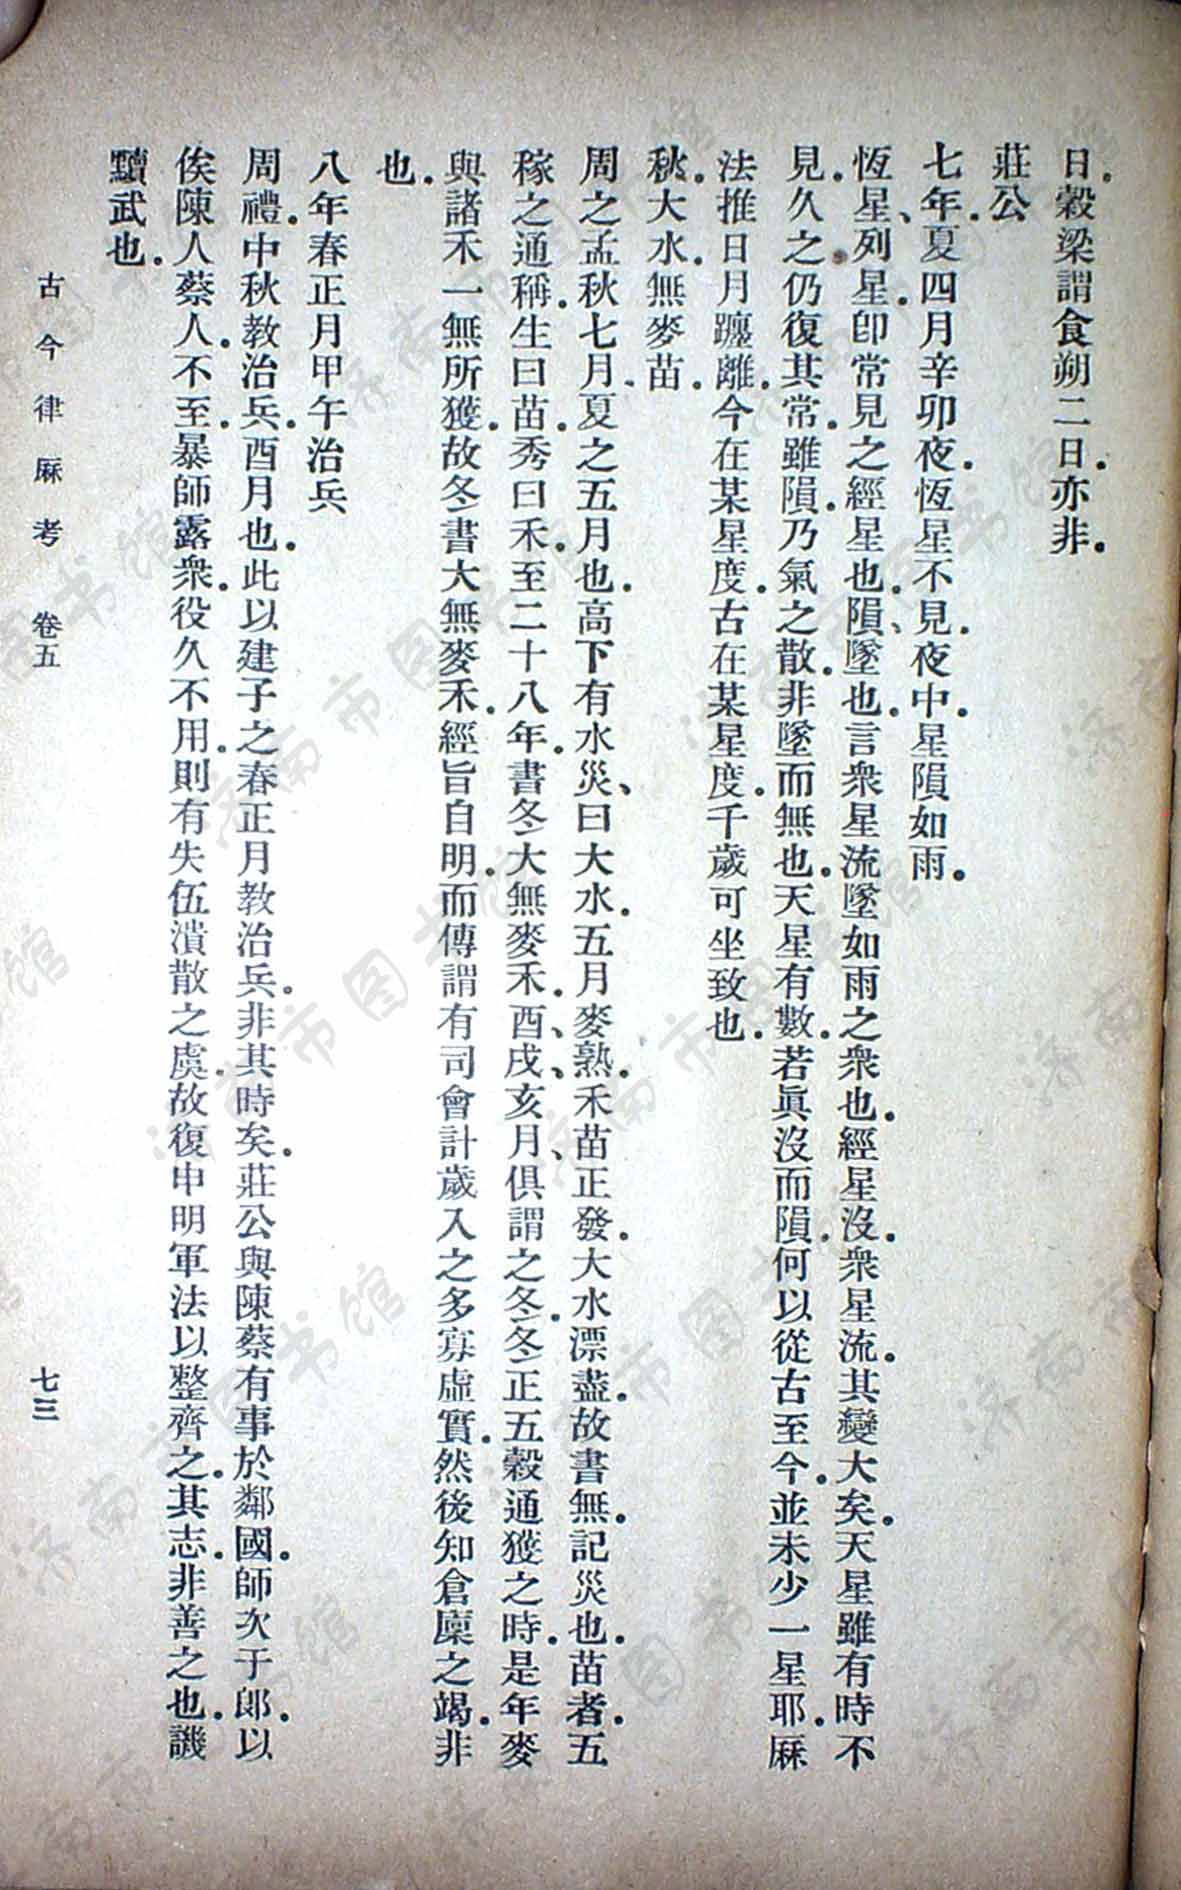 日。穀梁謂食朔二日。亦非。
莊公
七年。夏四月辛卯夜。恆星不見。夜中。星隕如雨。
恆星、列星。卽常見之經星也。隕、墜也。言衆星流墜如雨之衆也。經星沒。衆星流。其變大矣。天星雖有時不
見。久之仍復其常。雖隕。乃氣之散。非墜而無也。天星有數。若眞沒而隕。何以從古至今。並未少一星耶。厤
法推日月躔離。今在某星度。古在某星度。千歲可坐致也。
秋。大水。無麥苗。
周之孟秋七月。夏之五月也。高下有水災、曰大水。五月麥熟。禾苗正發。大水漂盡。故書無。記災也。苗者。五
稼之通稱。生曰苗。秀曰禾。至二十八年。書冬大無麥禾。酉、戌、亥月、俱謂之冬。冬正五穀通獲之時。是年麥
與諸禾一無所獲。故冬書大無麥禾。經旨自明。而傳謂有司會計歲入之多寡虛實。然後知倉廩之竭。非
也。
八年春正月甲午治兵
周禮。中秋教治兵。酉月也。此以建子之春正月教治兵。非其時矣。莊公與陳蔡有事於鄰國。師次于郎。以
俟陳人蔡人。不至。暴師露衆。役久不用。則有失伍潰散之虞。故復申明軍法以整齊之。其志非善之也。譏
黷武也。
古今律厤考 卷五 七三
济南市图书馆